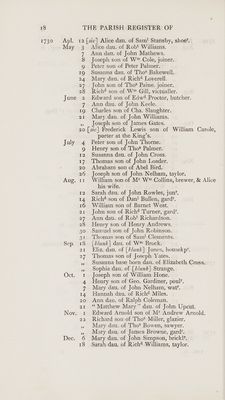 18 THE PARISH REGISTER OF
1730 Apl. 12 [sic] Alice dau. of Sam^l Stansby, shoe^r.
May 3 Alice dau. of Rob^t Williams.
7 Ann dau. of John Mathews.
8 Joseph son of W^m Cole, joiner.
9 Peter son of Peter Palmer.
19 Susanna dau. of Tho^s Bakewell.
24 Mary dau. of Rich^d Loverell.
27 John son of Tho^s Paine, joiner.
28 Rich^d son of W^m Gill, victualler.
June 2 Edward son of Edw^d Proctor, butcher.
7 Ann dau. of John Keele.
19 Charles son of Cha. Slaughter.
21 Mary dau. of John Williams.
„ Joseph son of James Gates.
20 [sic] Frederick Lewis son of William Carole,
porter at the King's.
July 4 Peter son of John Thorne.
9 Henry son of Tho^s Palmer.
12 Susanna dau. of John Cross.
17 Thomas son of John Loader.
20 Abraham son of Abel Bird.
26 Joseph son of John Nelham, taylor.
Aug. 11 William son of M^r W^m Collins, brewer, & Alice
his wife.
12 Sarah dau. of John Rowles, jun^r.
14 Rich^d son of Dan^l Bullen, gard^r.
16 William son of Barnet West.
21 John son of Rich^d Turner, gard^r.
27 Ann dau. of Rob^t Richardson.
28 Henry son of Henry Andrews.
30 Samuel son of John Robinson.
31 Thomas son of Sam^l Clements.
Sep. 18 [blank] dau. of W^m Brock.
21 Eliz. dau. of [blank] Jones, housekp^r.
27 Thomas son of Joseph Yates.
„ Susanna base born dau. of Elizabeth Cross.
„ Sophia dau. of [blank] Strange.
Oct. 1 Joseph son of William Hone.
4 Henry son of Geo. Gardiner, poul^r.
7 Mary dau. of John Nelham, wat^n.
14 Hannah dau. of Rich^d Miles.
20 Ann dau. of Ralph Coleman.
21 "Matthew Mary" dau. of John Upcut.
Nov. 2 Edward Arnold son of M^r Andrew Arnold.
22 Richard son of Tho^s Miller, glazier.
„ Mary dau. of Tho^s Bowen, sawyer.
„ Mary dau. of James Browne, gard^r.
Dec. 6 Mary dau. of John Simpson, brickl^r.
18 Sarah dau. of Rich^d Williams, taylor.